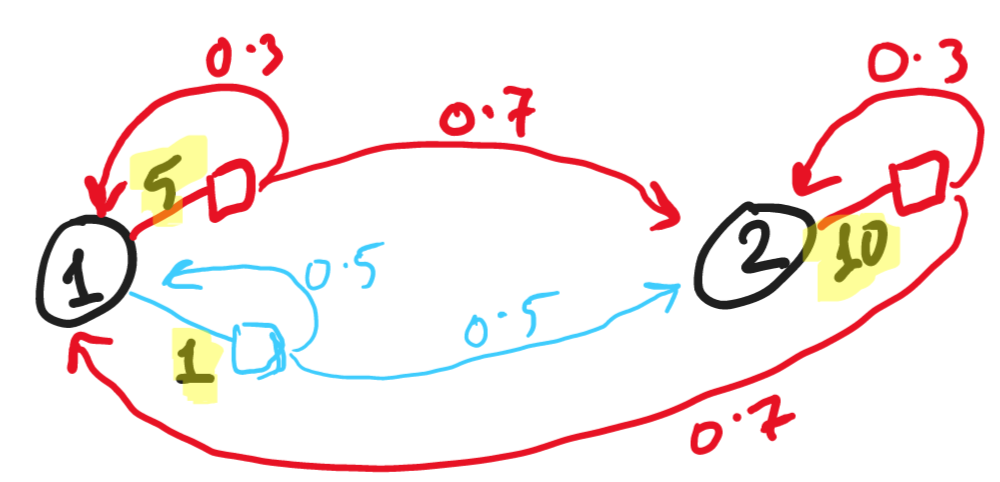 0.3
0.7
0.3
5
1
2
10
0.5
0.5
1
0.7